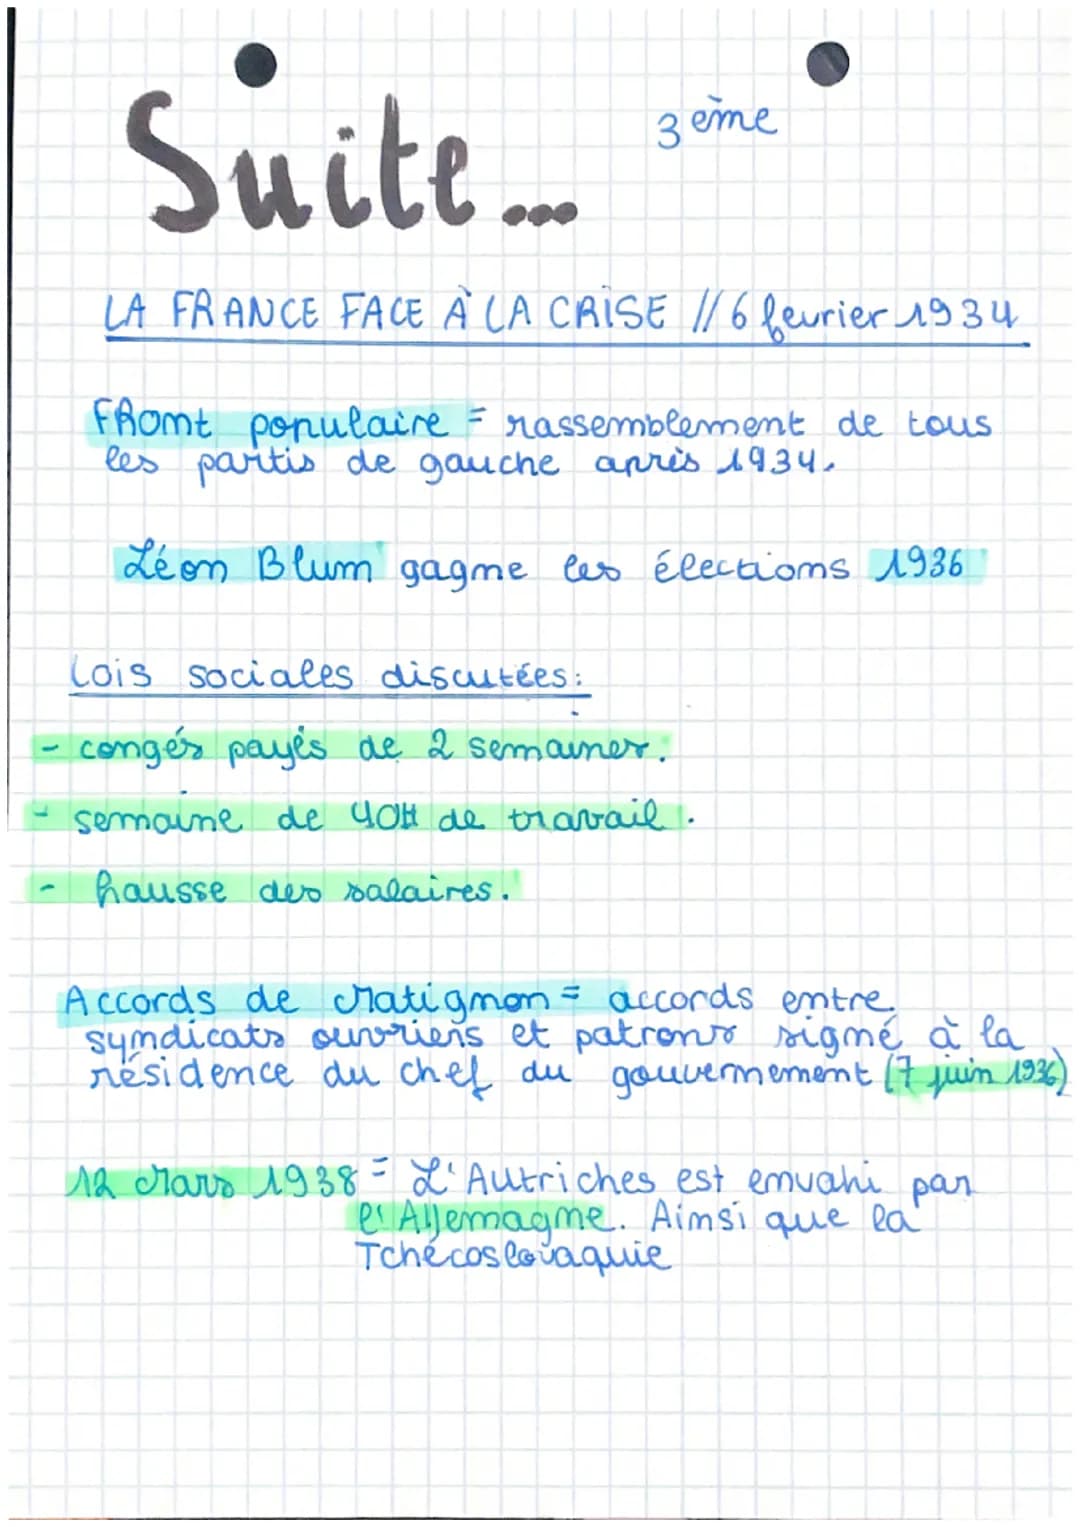 Suite...
3 ème
LA FRANCE FACE À LA CRISE // 6 fevrier 1934
FRont populaire = rassemblement de tous
les partis de gauche après 1934.
Léon Blum gagne les élections 1936
Lois sociales discutées:
- congés payés de 2 semaines.
- semaine de 40H de travail.
- hausse des salaires.
Accords de Matignon = accords entre
syndicats ouvriers et patrons signé à la
résidence du chef du gouvernement (7 juin 1936)
12 Mars 1938 = L'Autriches est envahi par
l'Allemagne. Ainsi que la
Tchécoslovaquie